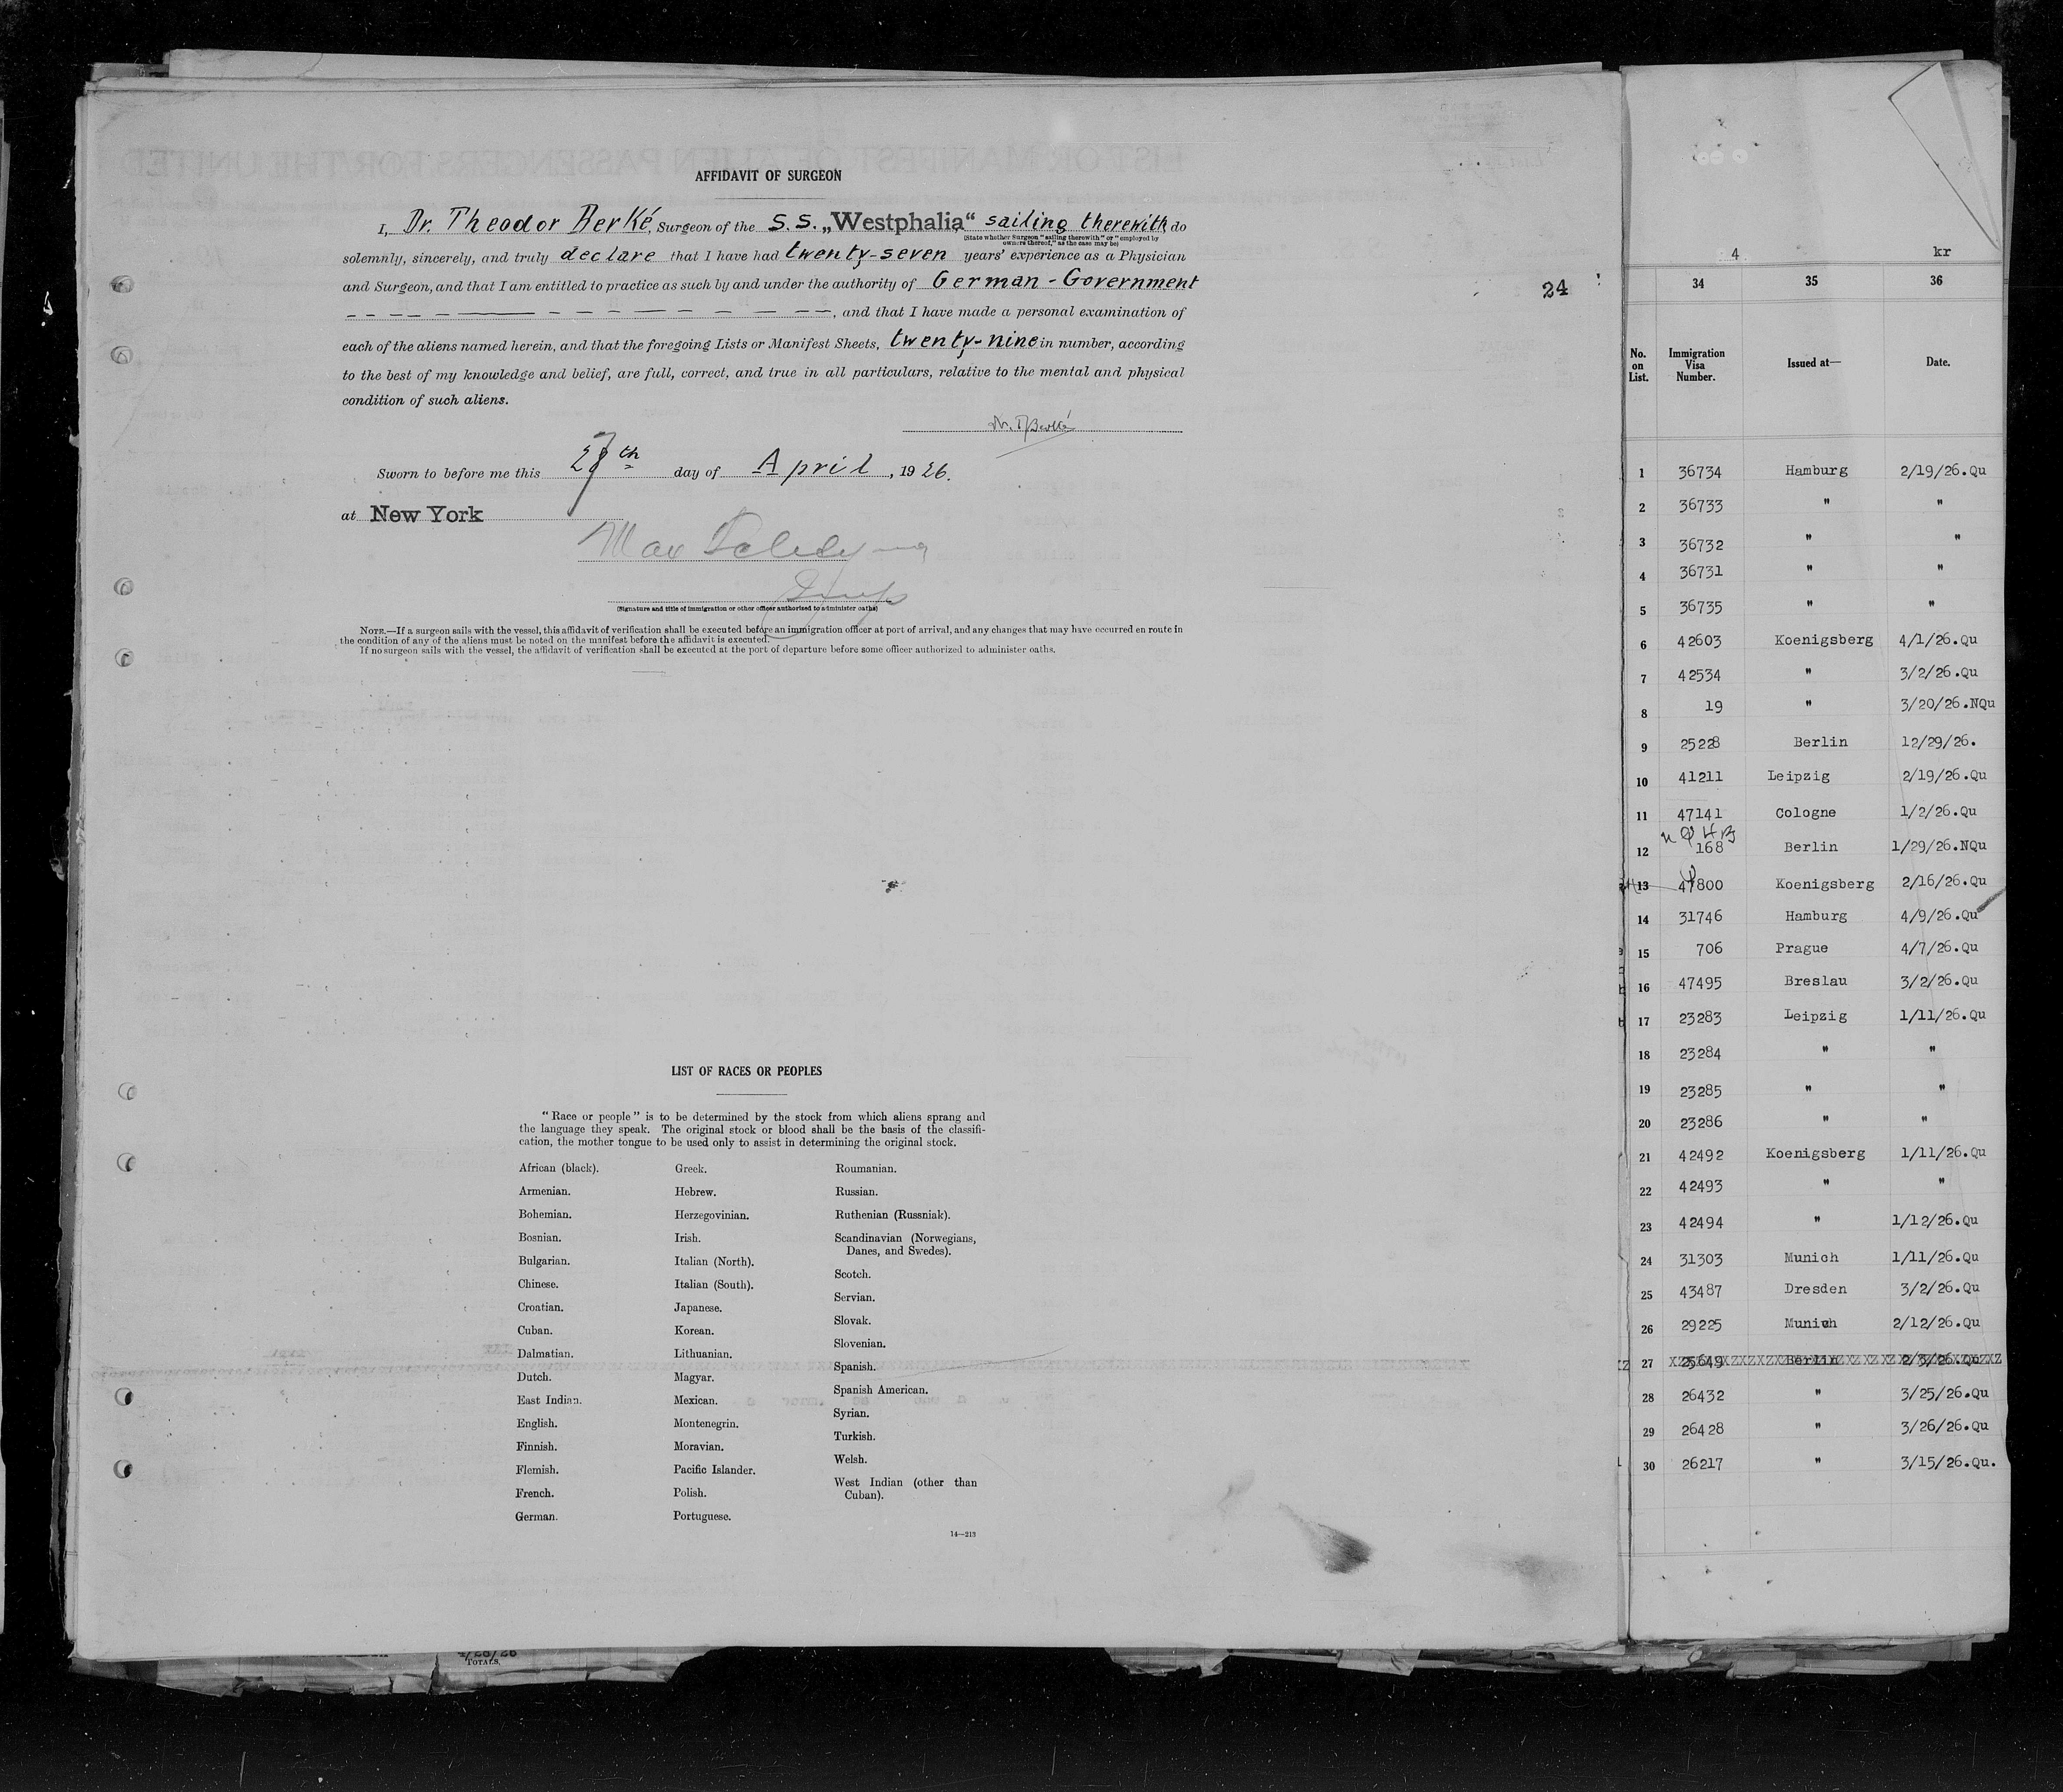 AFFIDAVIT OF SURGEON
I, Dr. Theodor Berké, Surgeon of the S.S. „Westphalia“ sailing therewith do
(State whether Surgeon "sailing therewith" or "employed by
owners thereof," as the case may be)
solemnly, sincerely, and truly declare that I have had twenty-seven years' experience as a Physician
and Surgeon, and that I am entitled to practice as such by and under the authority of German-Government
, and that I have made a personal examination of
each of the aliens named herein, and that the foregoing Lists or Manifest Sheets, twenty-nine in number, according
to the best of my knowledge and belief, are full, correct, and true in all particulars, relative to the mental and physical
condition of such aliens.
Sworn to before me this day of April, 1926.
at New York
Max
(Signature and title of immigration or other officer authorized to administer oaths)
NOTE.—If a surgeon sails with the vessel, this affidavit of verification shall be executed before an immigration officer at port of arrival, and any changes that may have occurred en route in
the condition of any of the aliens must be noted on the manifest before the affidavit is executed.
If no surgeon sails with the vessel, the affidavit of verification shall be executed at the port of departure before some officer authorized to administer oaths.
24
LIST OF RACES OR PEOPLES
"Race or people" is to be determined by the stock from which aliens sprang and
the language they speak. The original stock or blood shall be the basis of the classifi-
cation, the mother tongue to be used only to assist in determining the original stock.
African (black).
Armenian.
Bohemian.
Bosnian.
Bulgarian.
Chinese.
Croatian.
Cuban.
Dalmatian.
Dutch.
East Indian.
English.
Finnish.
Flemish.
French.
German.
Greek.
Hebrew.
Herzegovinian.
Irish.
Italian (North).
Italian (South).
Japanese.
Korean.
Lithuanian.
Magyar.
Mexican.
Montenegrin.
Moravian.
Pacific Islander.
Polish.
Portuguese.
Roumanian.
Russian.
Ruthenian (Russniak).
Scandinavian (Norwegians,
Danes, and Swedes).
Scotch.
Servian.
Slovak.
Slovenian.
Spanish.
Spanish American.
Syrian.
Turkish.
Welsh.
West Indian (other than
Cuban).
14—213
4/28/26
TOTALS,
4 kr
34 35 36
No. on List. Immigration Visa Number. Issued at— Date.
1 36734 Hamburg 2/19/26.Qu
2 36733 " "
3 36732 " "
4 36731 " "
5 36735 " "
6 42603 Koenigsberg 4/1/26.Qu
7 42534 " 3/2/26.Qu
8 19 " 3/20/26.NQu
9 25228 Berlin 12/29/26.
10 41211 Leipzig 2/19/26.Qu
11 47141 Cologne 1/2/26.Qu
12 168 Berlin 1/29/26.NQu
13 47800 Koenigsberg 2/16/26.Qu
14 31746 Hamburg 4/9/26.Qu
15 706 Prague 4/7/26.Qu
16 47495 Breslau 3/2/26.Qu
17 23283 Leipzig 1/11/26.Qu
18 23284 " "
19 23285 " "
20 23286 " "
21 42492 Koenigsberg 1/11/26.Qu
22 42493 " "
23 42494 " 1/12/26.Qu
24 31303 Munich 1/11/26.Qu
25 43487 Dresden 3/2/26.Qu
26 29225 Munich 2/12/26.Qu
27 25649 Berlin 2/3/26.Qu
28 26432 " 3/25/26.Qu
29 26428 " 3/26/26.Qu
30 26217 " 3/15/26.Qu.